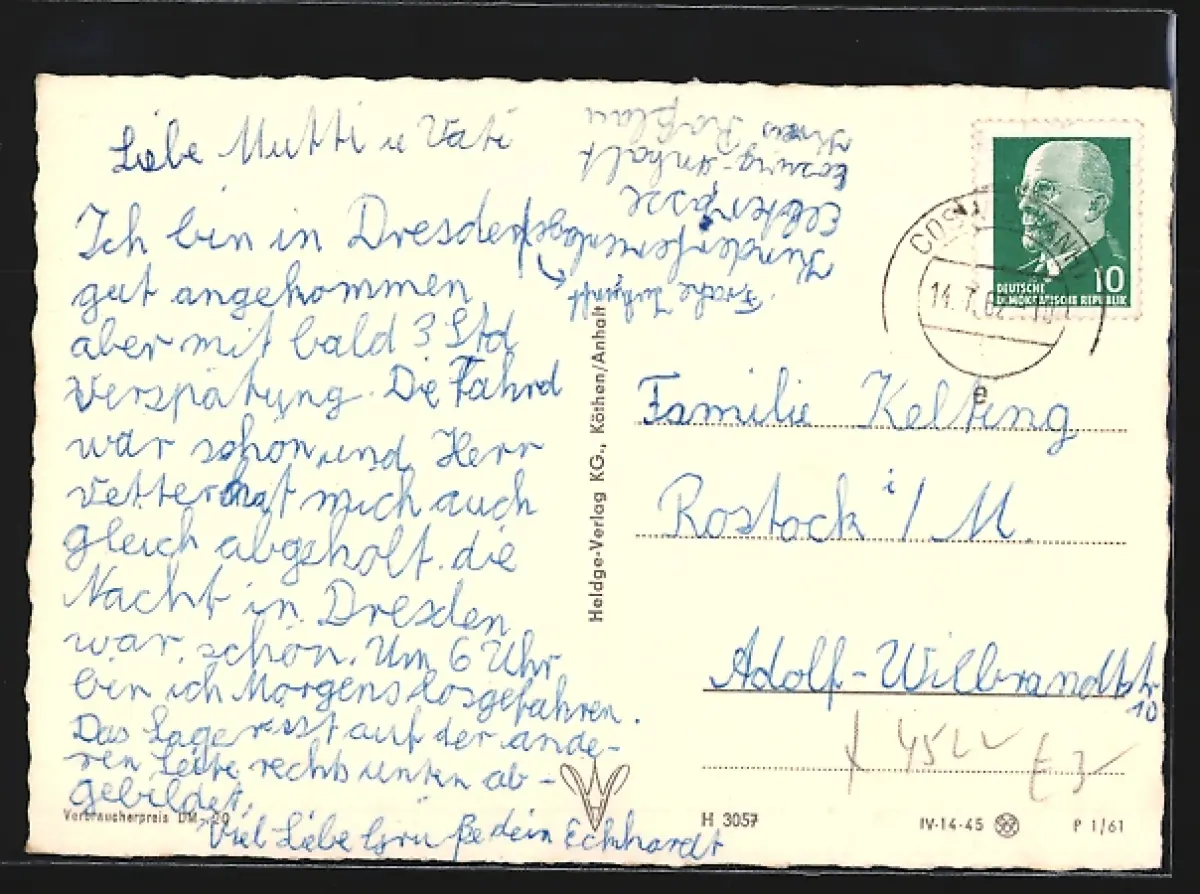 Liebe Mutti u Vati
Ich bin in Dresden
gut angekommen
aber mit bald 3 Std
Verspätung. Die Fahrd
war schön und Herr
Vetter hat mich auch
gleich abgeholt. die
Nacht in Dresden
war schön. Um 6 Uhr
bin ich Morgens losgefahren.
Das Lager isst auf der ande-
ren Seite rechts unten ab-
gebildet.
Viel Liebe Grüße dein Eckhardt
Kinderferienlager
"Frohe Zukunft"
Elbterasse
Coswig-Anhalt
Kreis Roßlau
DEUTSCHE
DEMOKRATISCHE REPUBLIK
10
COSWIG (ANH
14.7.62-10
e
Familie Kelting
Rostock i/M.
Adolf-Wilbrandtstr
10
Heldge-Verlag KG., Köthen/Anhalt
Verbraucherpreis DM -,20
H 3057
IV-14-45
P 1/61